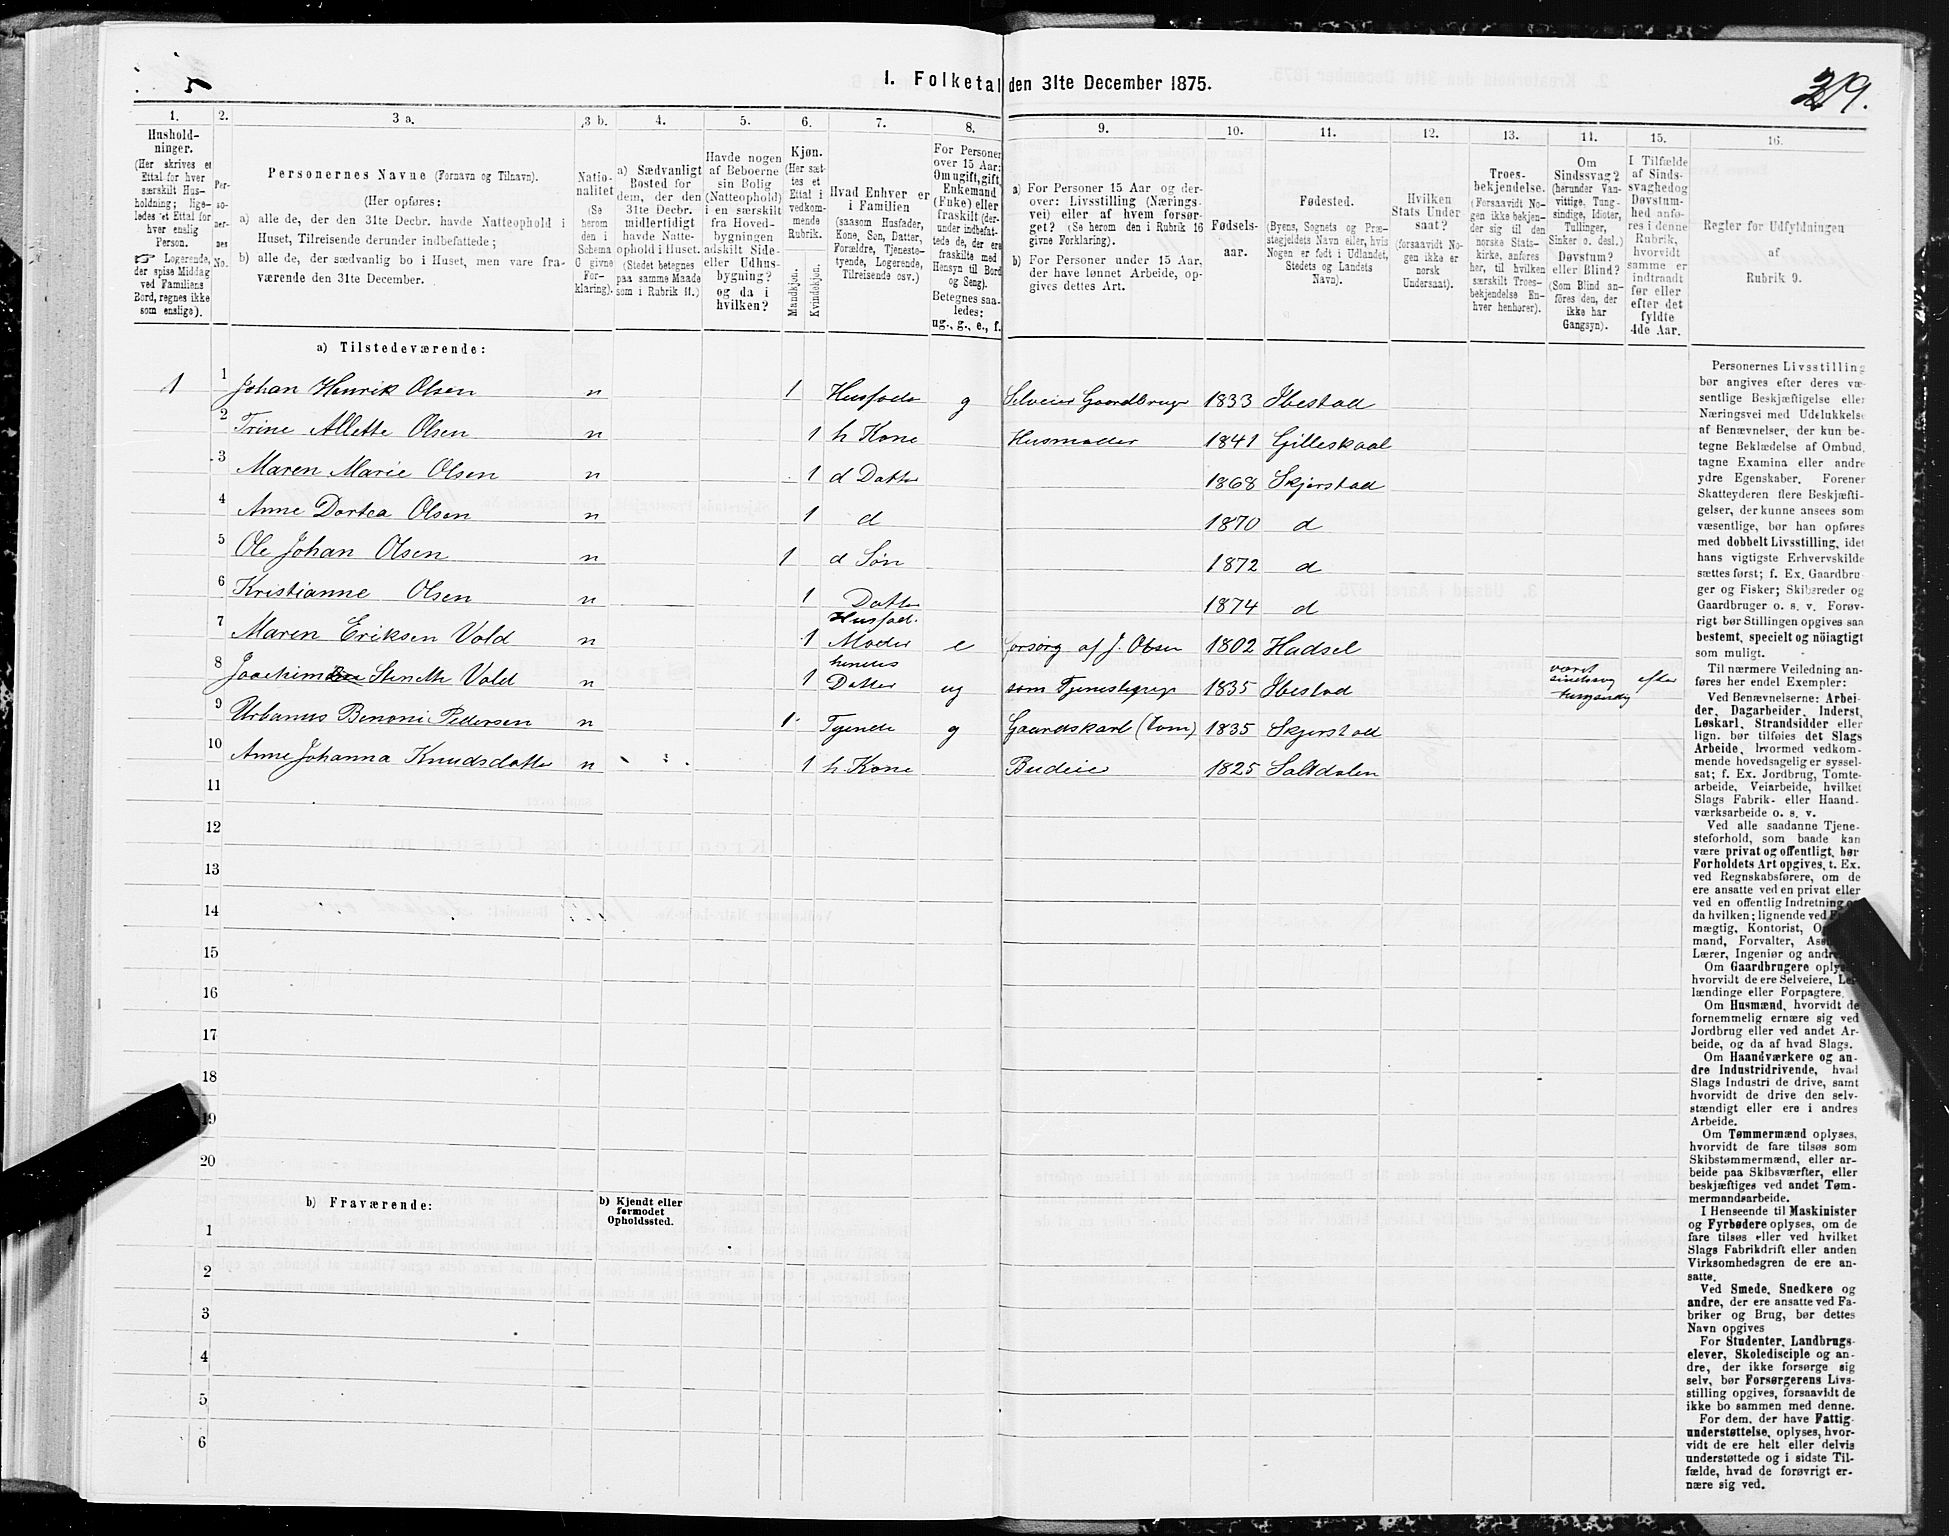 5
1. Folketal den 31te December 1875.
1.
Hushold-
ninger.
(Her skrives et
Ettal for hver
særskilt Hus-
holdning; lige-
ledes et Ettal for
hver enslig
Person.
☞ Logerende,
der spise Middag
ved Familiens
Bord, regnes ikke
som enslige).
2.
Per-
so-
ner-
nes
No.
3 a.
Personernes Navne (Fornavn og Tilnavn).
(Her opføres:
a) alle de, der den 31te Decbr. havde Natteophold i
Huset, Tilreisende derunder indbefattede;
b) alle de, der sædvanlig bo i Huset, men vare fra-
værende den 31te December.
3 b.
Natio-
nalitet
(Se
herom
den i
Schema
C givne
For-
klaring).
4.
a) Sædvanligt
Bosted for
dem, der den
31te Decbr.
midlertidigt
havde Natte-
ophold i Huset.
(Stedet betegnes
paa samme Maade
som i Rubrik 11.)
5.
Havde nogen
af Beboerne
sin Bolig
(Natteophold)
i en særskilt
fra Hoved-
bygningen
adskilt Side-
eller Udhus-
bygning?
og da i
hvilken?
6.
Kjøn.
(Her sæt-
tes et
Ettal i
vedkom-
mende
Rubrik.
Mandkjøn.
Kvindekjøn.
7.
Hvad Enhver er
i Familien
(saasom Husfader,
Kone, Søn, Datter,
Forældre, Tjeneste-
tyende, Logerende,
Tilreisende osv.)
8.
For Personer
over 15 Aar:
Om ugift, gift,
Enkemand
(Enke) eller
fraskilt (der-
under indbefat-
tede de, der ere
fraskilte med
Hensyn til Bord
og Seng).
Betegnes saa-
ledes:
ug., g., e., f.
9.
a) For Personer 15 Aar og der-
over: Livsstilling (Nærings-
vei) eller af hvem forsør-
get? (Se herom den i Rubrik 16
givne Forklaring).
b) For Personer under 15 Aar,
der have lønnet Arbeide, op-
gives dettes Art.
10.
Fødsels-
aar.
11.
Fødested.
(Byens, Sognets og Præ-
stegjeldets Navn eller, hvis
Nogen er født i Udlandet,
Stedets og Landets
Navn).
12.
Hvilken
Stats Under
saat?
(forsaavidt No-
gen ikke er
norsk
Undersaat).
13.
Troes-
bekjendelse.
(Forsaavidt No-
gen ikke bekjen-
der sig til den
norske Stats-
kirke, anføres
her, til hvilken
særskilt Troes-
bekjendelse En-
hver henhører).
14.
Om
Sindssvag?
(herunder Van-
vittige, Tung-
sindige, Idioter,
Tullinger,
Sinker o. desl.)
Døvstum?
eller Blind?
(Som Blind an-
føres den, der
ikke har
Gangsyn).
15.
I Tilfælde
af Sinds-
svaghed og
Døvstum-
hed anfø-
res i denne
Rubrik,
hvorvidt
samme er
indtraadt
før eller
efter det
fyldte
4de Aar.
16.
Regler for Udfyldningen
af
Rubrik 9.
a) Tilstedeværende:
1 1 Johan Henrik Olsen n 1 Husfader g Selveier Gaardbruger 1833 Ibestad
2 Trine Allette Olsen n 1 h Kone Husmoder 1841 Gilleskaal
3 Maren Marie Olsen n 1 d Datter 1868 Skjerstad
4 Anne Dortea Olsen n 1 d 1870 d
5 Ole Johan Olsen n 1 d Søn 1872 d
6 Kristianne Olsen n 1 Datter 1874 d
7 Maren Eriksen Vold n 1 Husfad. Moder e forsørg af J. Olsen 1802 Hadsel
8 Joachim Stenette Vold n 1 hendes Datter ug som Tjenestepige 1835 Ibestad været efter
9 Urbanus Benoni Pedersen n 1 Tyende g Gaardskarl 1835 Skjerstad
10 Anne Johanna Knudsdatter n 1 h. Kone Budeie 1825 Saltdalen
11
12
13
14
15
16
17
18
19
20
b) Fraværende:
b) Kjendt eller
formodet
Opholdssted.
1
2
3
4
5
6
Personernes Livsstilling
bør angives efter deres væ-
sentlige Beskjæftigelse eller
Næringsvei med Udelukkelse
af Benævnelser, der kun be-
tegne Beklædelse af Ombud,
tagne Examina eller andre
ydre Egenskaber. Forener
Skatteyderen flere Beskjæfti-
gelser, der kunne ansees som
væsentlige, bør han opføres
med dobbelt Livsstilling, idet
hans vigtigste Erhvervskilde
sættes først; f. Ex. Gaardbru-
ger og Fisker; Skibsreder og
Gaardbruger o. s. v. Forøv-
rigt bør Stillingen opgives saa
bestemt, specielt og nøiagtigt
som muligt.
Til nærmere Veiledning an-
føres her endel Exempler:
Ved Benævnelserne: Arbei-
der, Dagarbeider, Inderst,
Løskarl, Strandsidder eller
lign. bør tilføies det Slags
Arbeide, hvormed vedkom-
mende hovedsagelig er syssel-
sat; f. Ex. Jordbrug, Tomte-
arbeide, Veiarbeide, hvilket
Slags Fabrik- eller Haand-
værksarbeide o. s. v.
Ved alle saadanne Tjene-
steforhold, som baade kan
være privat og offentligt, bør
Forholdets Art opgives, t. Ex.
ved Regnskabsførere, om de
ere ansatte ved en privat eller
ved en offentlig Indretning
da hvilken; lignende ved
mægtig, Kontorist,
mand, Forvalter,
Lærer, Ingeniør og
Om Gaardbrugere
hvorvidt de ere Selveiere,
lændinge eller Forpagtere.
Om Husmænd, hvorvidt de
fornemmelig ernære sig ved
Jordbrug eller ved andet Ar-
beide, og da af hvad Slags.
Om Haandværkere og an-
dre Industridrivende, hvad
Slags Industri de drive, samt
hvorvidt de drive den selv-
stændigt eller ere i andres
Arbeide.
Om Tømmermænd oplyses,
hvorvidt de fare tilsøs som
Skibstømmermænd, eller ar-
beide paa Skibsværfter, eller
beskjæftiges ved andet Tøm-
mermandsarbeide.
I Henseende til Maskinister
og Fyrbødere oplyses, om de
fare tilsøs eller ved hvilket
Slags Fabrikdrift eller anden
Virksomhedsgren de ere an-
satte.
Ved Smede, Snedkere og
andre, der ere ansatte ved Fa-
briker og Brug, bør dettes
Navn opgives
For Studenter, Landbrugs-
elever, Skoledisciple og an-
dre, der ikke forsørge sig
selv, bør Forsørgerens Livs-
stilling opgives, forsaavidt de
ikke bo sammen med denne.
For dem, der have Fattig-
understøttelse, oplyses, hvor-
vidt de ere helt eller delvis
understøttede og i sidste Til-
fælde, hvad de forøvrigt er-
nære sig ved.